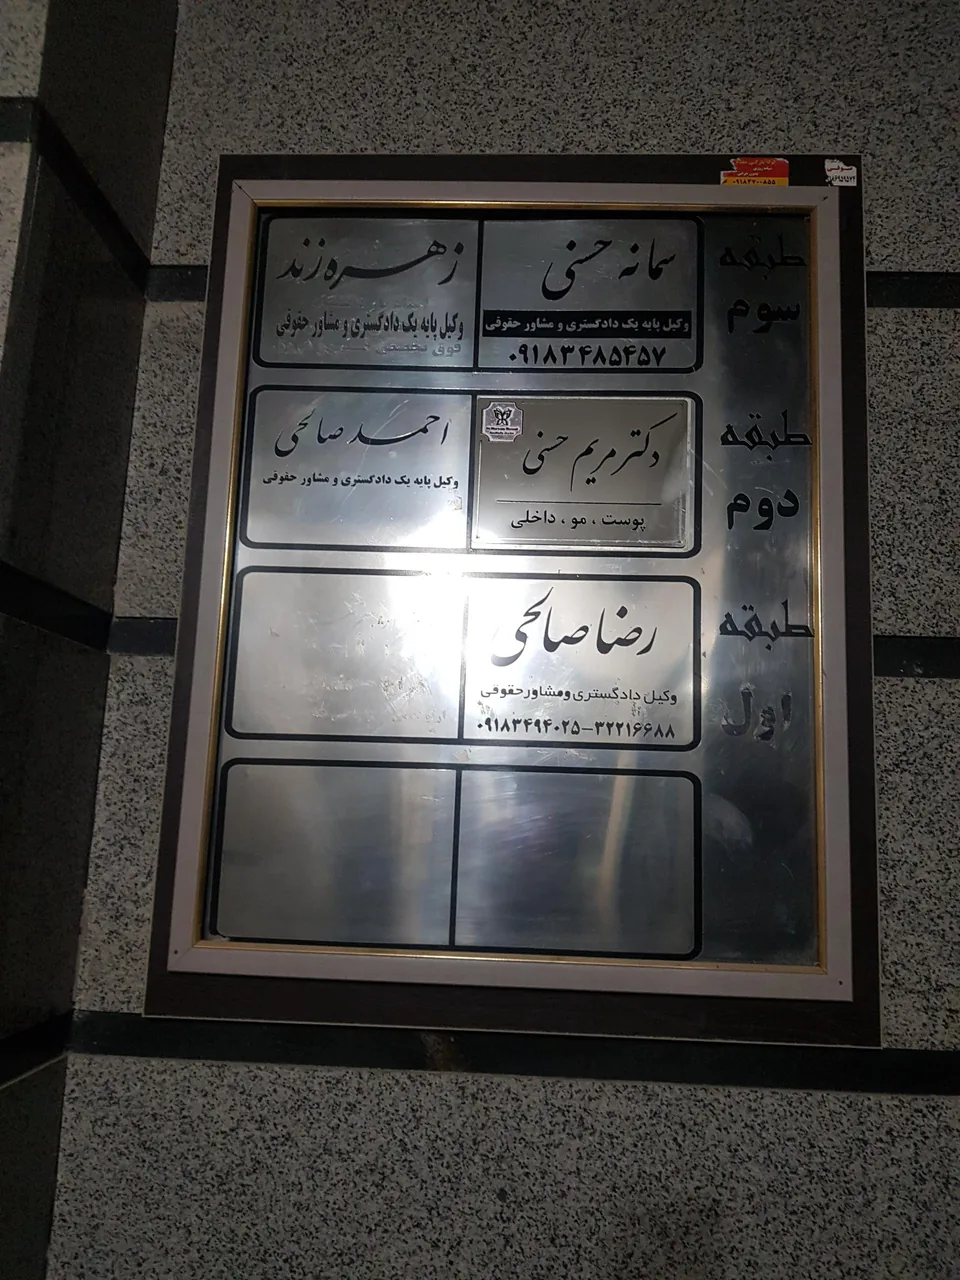 طبقه
سوم
سمانه حسنی
وکیل پایه یک دادگستری و مشاور حقوقی
۰۹۱۸۳۴۸۵۴۵۷
زهره زند
وکیل پایه یک دادگستری و مشاور حقوقی
طبقه
دوم
دکتر مریم حسنی
پوست ، مو ، داخلی
احمد صالحی
وکیل پایه یک دادگستری و مشاور حقوقی
طبقه
اول
رضا صالحی
وکیل دادگستری و مشاور حقوقی
۰۹۱۸۳۴۹۴۰۲۵-۳۲۲۱۶۶۸۸